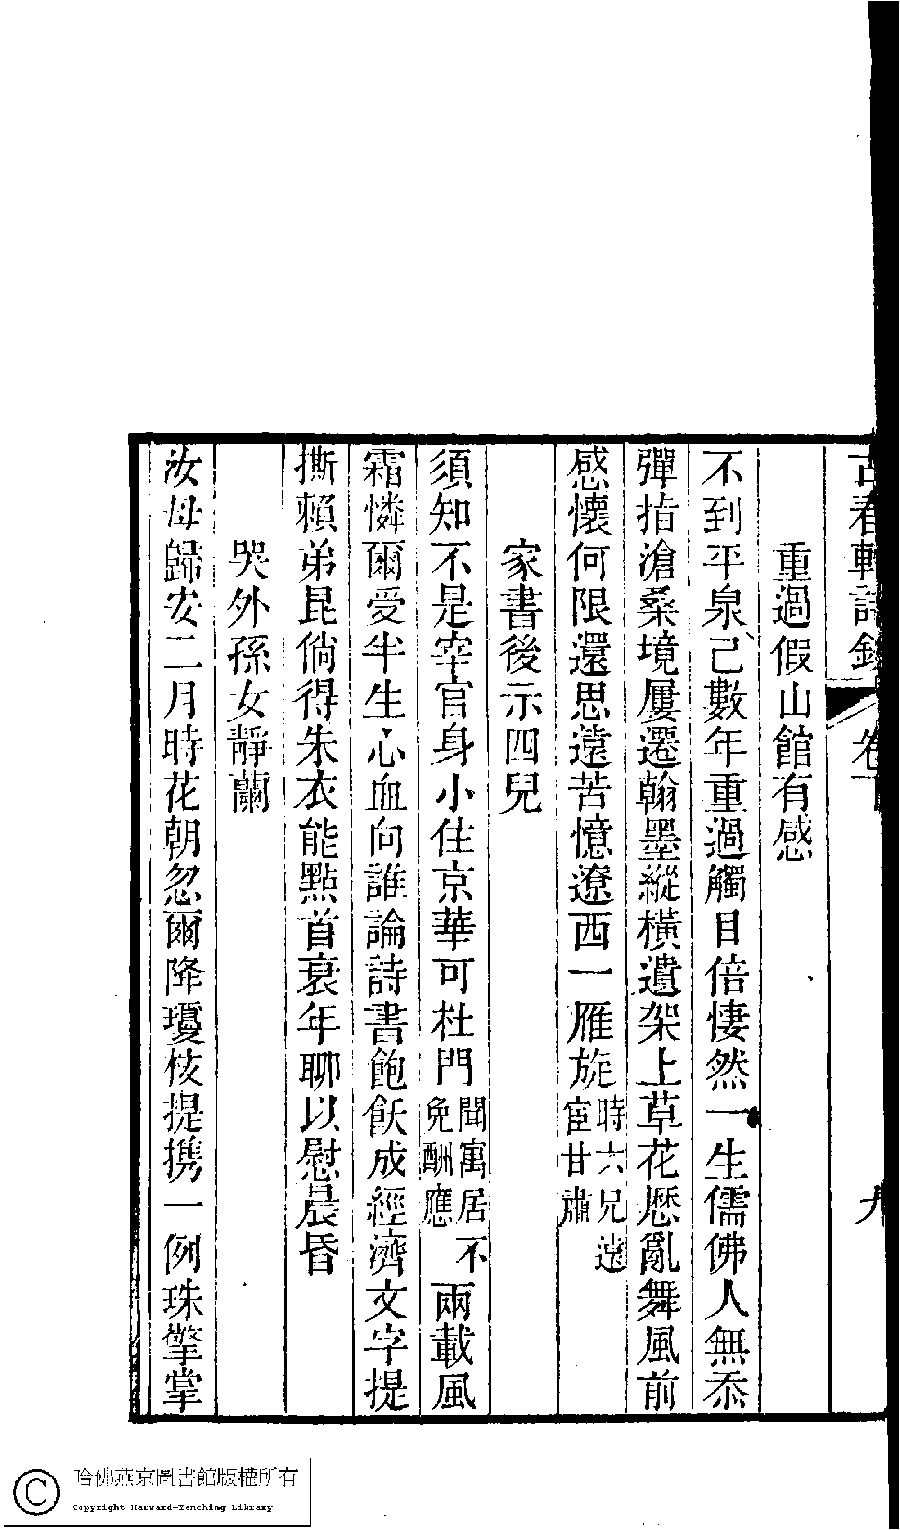 古春軒詩鈔 卷下 九
重過假山館有感
不到平泉己數年重過觸目倍悽然一生儒佛人無忝
彈指滄桑境屢遷翰墨縱橫遺架上草花厯亂舞風前
感懷何限還思遠苦憶遼西一雁旋時六兄遠宦甘肅
家書後示四兒
須知不是宰官身小住京華可杜門聞寓居不免酬應兩載風
霜憐爾受半生心血向誰論詩書飽飫成經濟文字提
撕賴弟昆倘得朱衣能點首衰年聊以慰晨昏
哭外孫女靜蘭
汝母歸安二月時花朝忽爾降瓊核提携一例珠擎掌
哈佛燕京圖書館版權所有
Copyright Harvard-Yenching Library